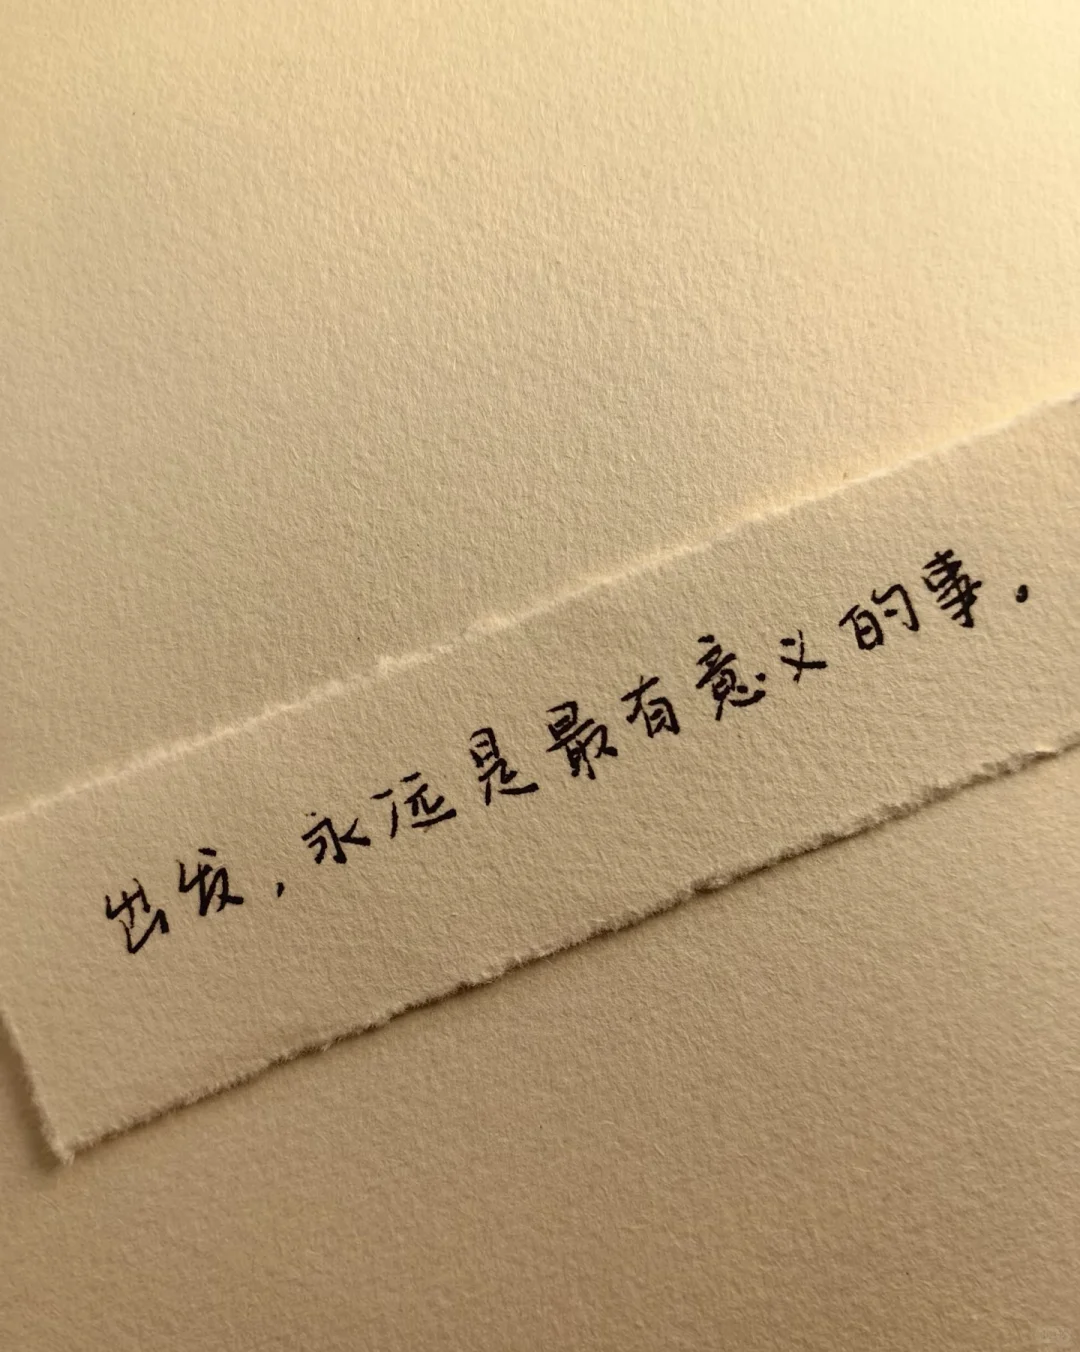 出发,永远是最有意义的事.